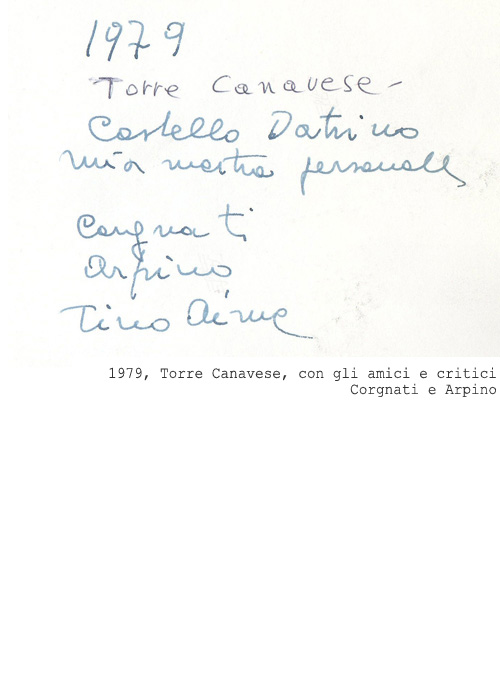 1979
Torre Canavese -
Castello Datrino
mia mostra personale
Corgnati
Arpino
Tino Aime
1979, Torre Canavese, con gli amici e critici
Corgnati e Arpino